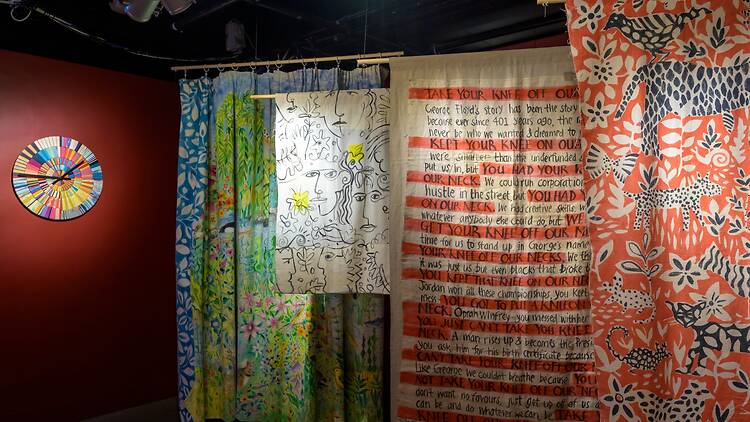 TAKE YOUR KNEE OFF OUR
George Floyd's story has been the story
because ever since 401 years ago, the
never be who we wanted & dreamed to
KEPT YOUR KNEE ON OUR
were smarter than the underfunded
put us in, but YOU HAD YOUR
OUR NECK. We could run corporation
hustle in the street, but YOU HAD
ON OUR NECK. We had creative skills
whatever anybody else could do, but WE
GET YOUR KNEE OFF OUR
time for us to stand up in George's name
YOUR KNEE OFF OUR NECKS. We
it was just us but even blacks that broke
YOU KEPT THAT KNEE ON OUR
Jordan won all these championships, you kept
mess YOU GOT TO PUT A KNIFE ON
NECK. Oprah Winfrey you messed with her
YOU JUST CAN'T TAKE YOU KNEE
NECK. A man rises up & becomes the Pres
you ask him for his birth certificate because
CAN'T TAKE YOUR KNEE OFF OUR
Like George we couldn't breathe because
NOT TAKE YOUR KNEE OFF OUR
don't want no favours, just get up off of us
can be and do whatever we can be TAKE
KNEE OFF